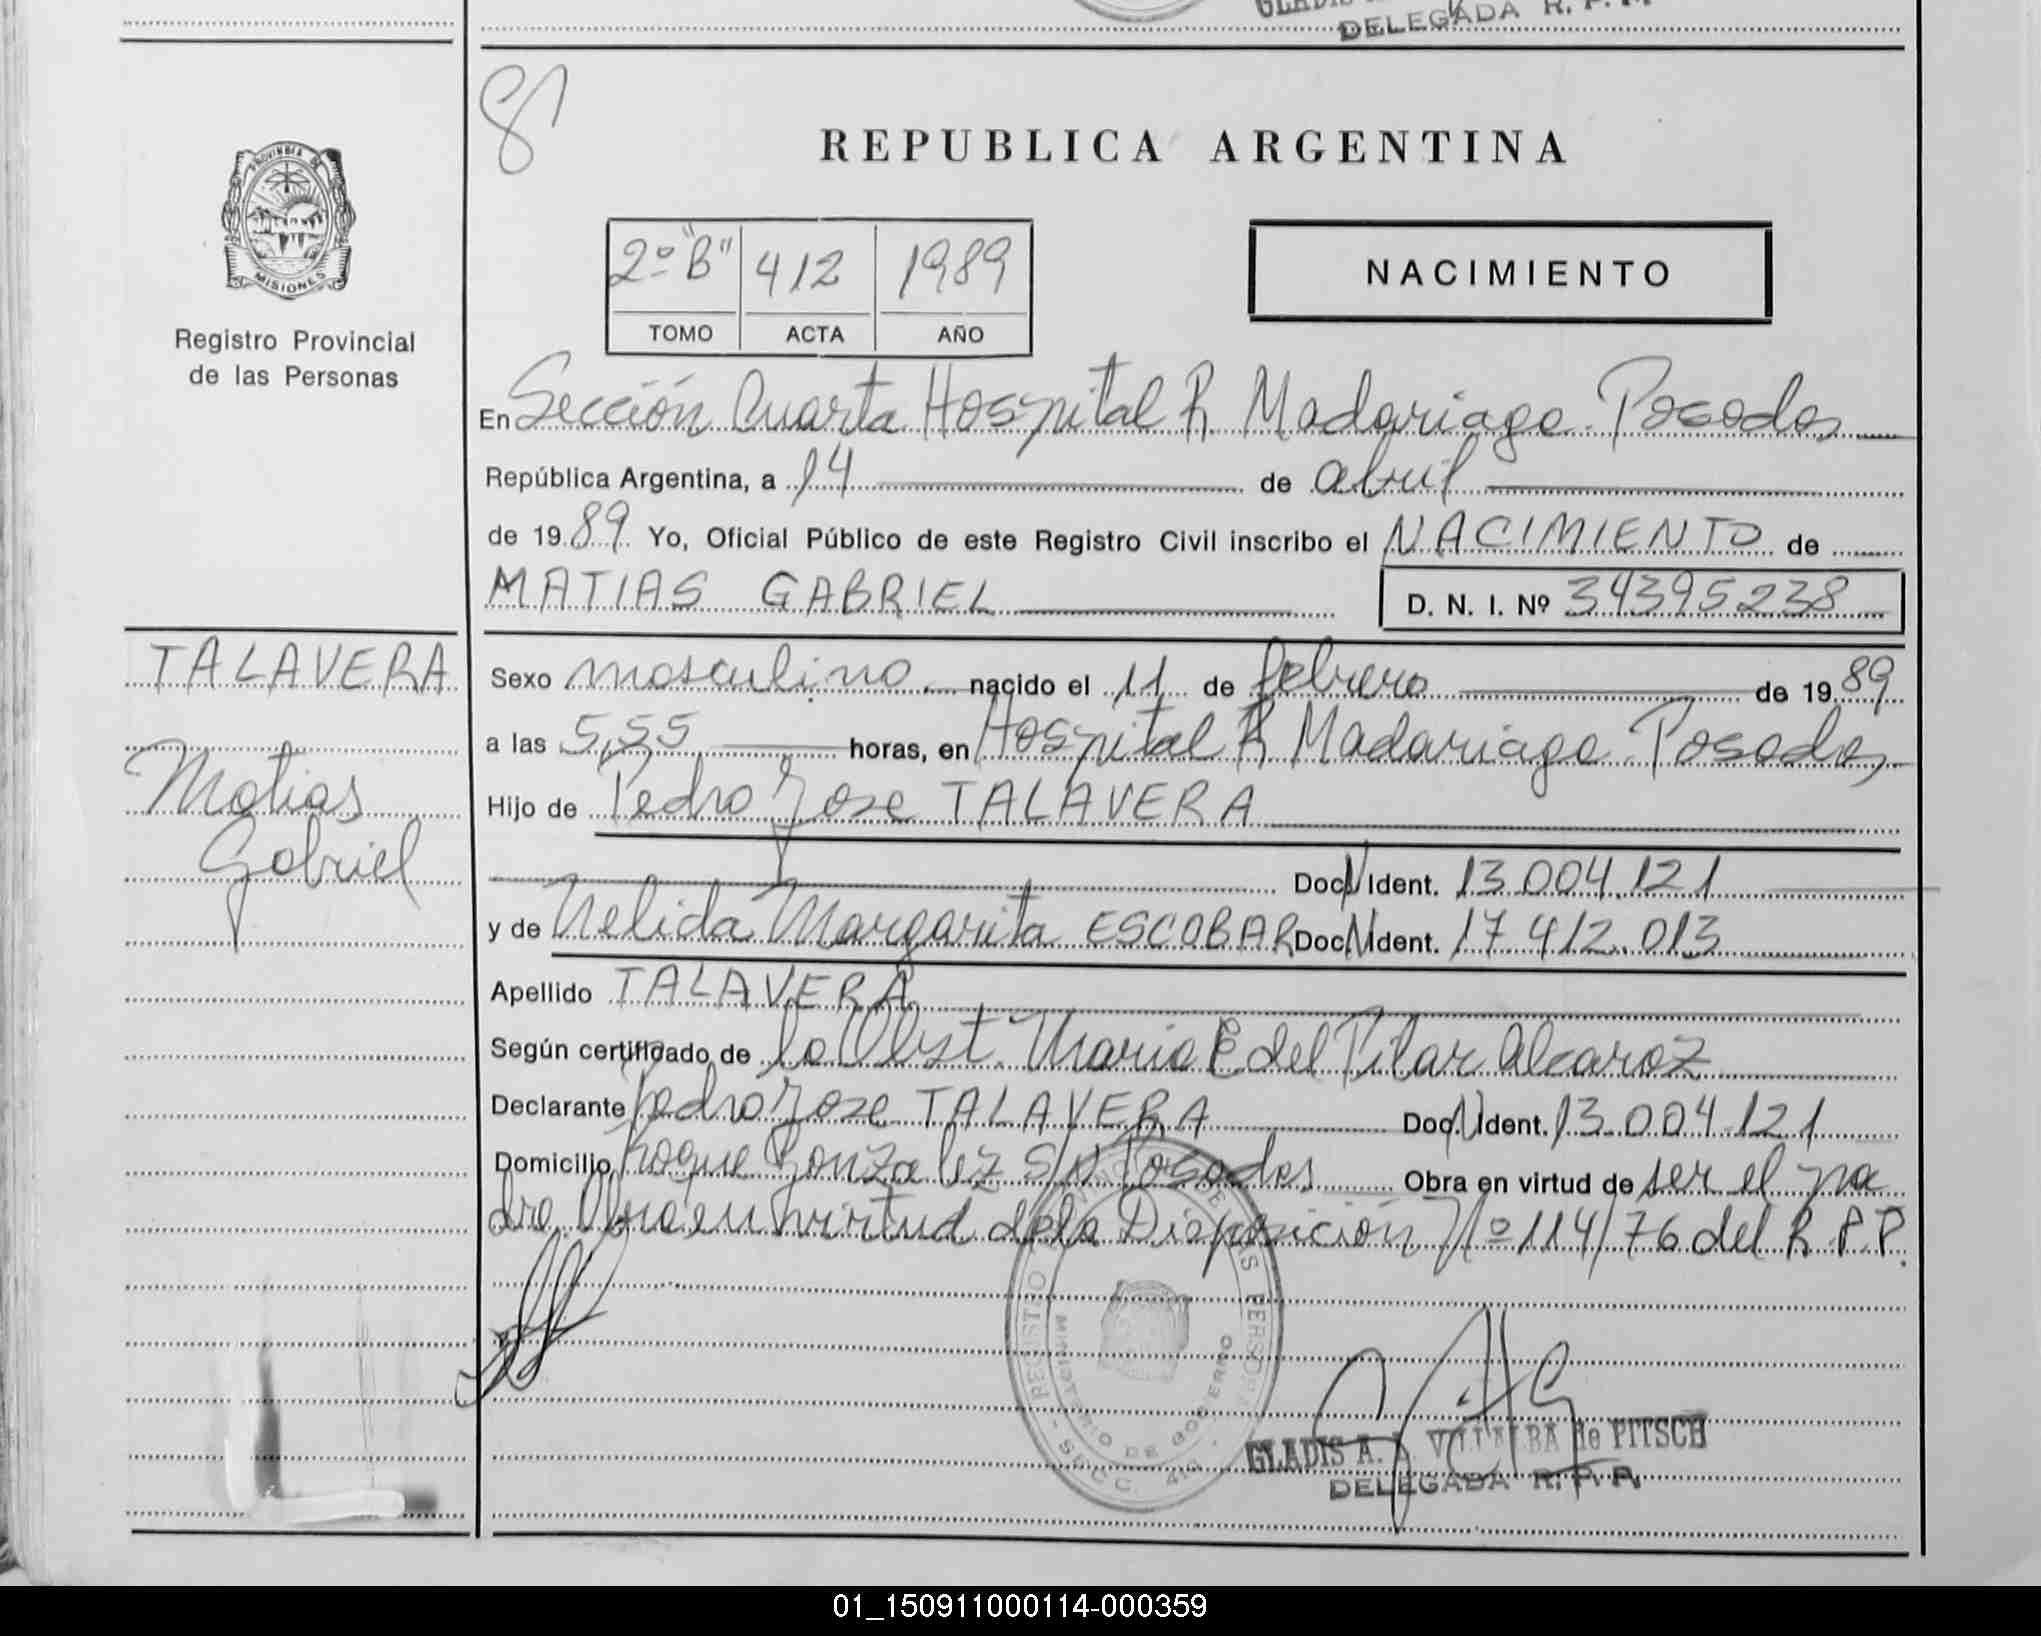 DELEGADA R. P. P.
81
PROVINCIA DE
MISIONES
Registro Provincial
de las Personas
REPUBLICA ARGENTINA
2º "B" 412 1989
TOMO ACTA AÑO
NACIMIENTO
En Sección Cuarta Hospital R Madariaga. Posadas
República Argentina, a 14 de abril
de 1989 Yo, Oficial Público de este Registro Civil inscribo el NACIMIENTO de
MATIAS GABRIEL D. N. I. Nº 34395238
TALAVERA
Matias
Gabriel
Sexo masculino nacido el 11 de febrero de 1989
a las 5,55 horas, en Hospital R Madariaga. Posadas,
Hijo de Pedro Jose TALAVERA
Doc N Ident. 13.004.121
y de Nelida Margarita ESCOBAR Doc N Ident. 17.412.013
Apellido TALAVERA
Según certificado de la Obst. Maria E del Pilar Alcaraz
Declarante Pedro Jose TALAVERA Doc. N Ident. 13.004.121
Domicilio Roque Gonzalez S/N Posadas Obra en virtud de ser el pa
dre. Obra en virtud de la Disposición Nº 114/76 del R.P.P.
REGISTRO PROVINCIAL DE LAS PERSONAS
MINISTERIO DE GOBIERNO
GLADIS A. VILLALBA de PITSCH
DELEGADA R. P. P.
01_150911000114-000359